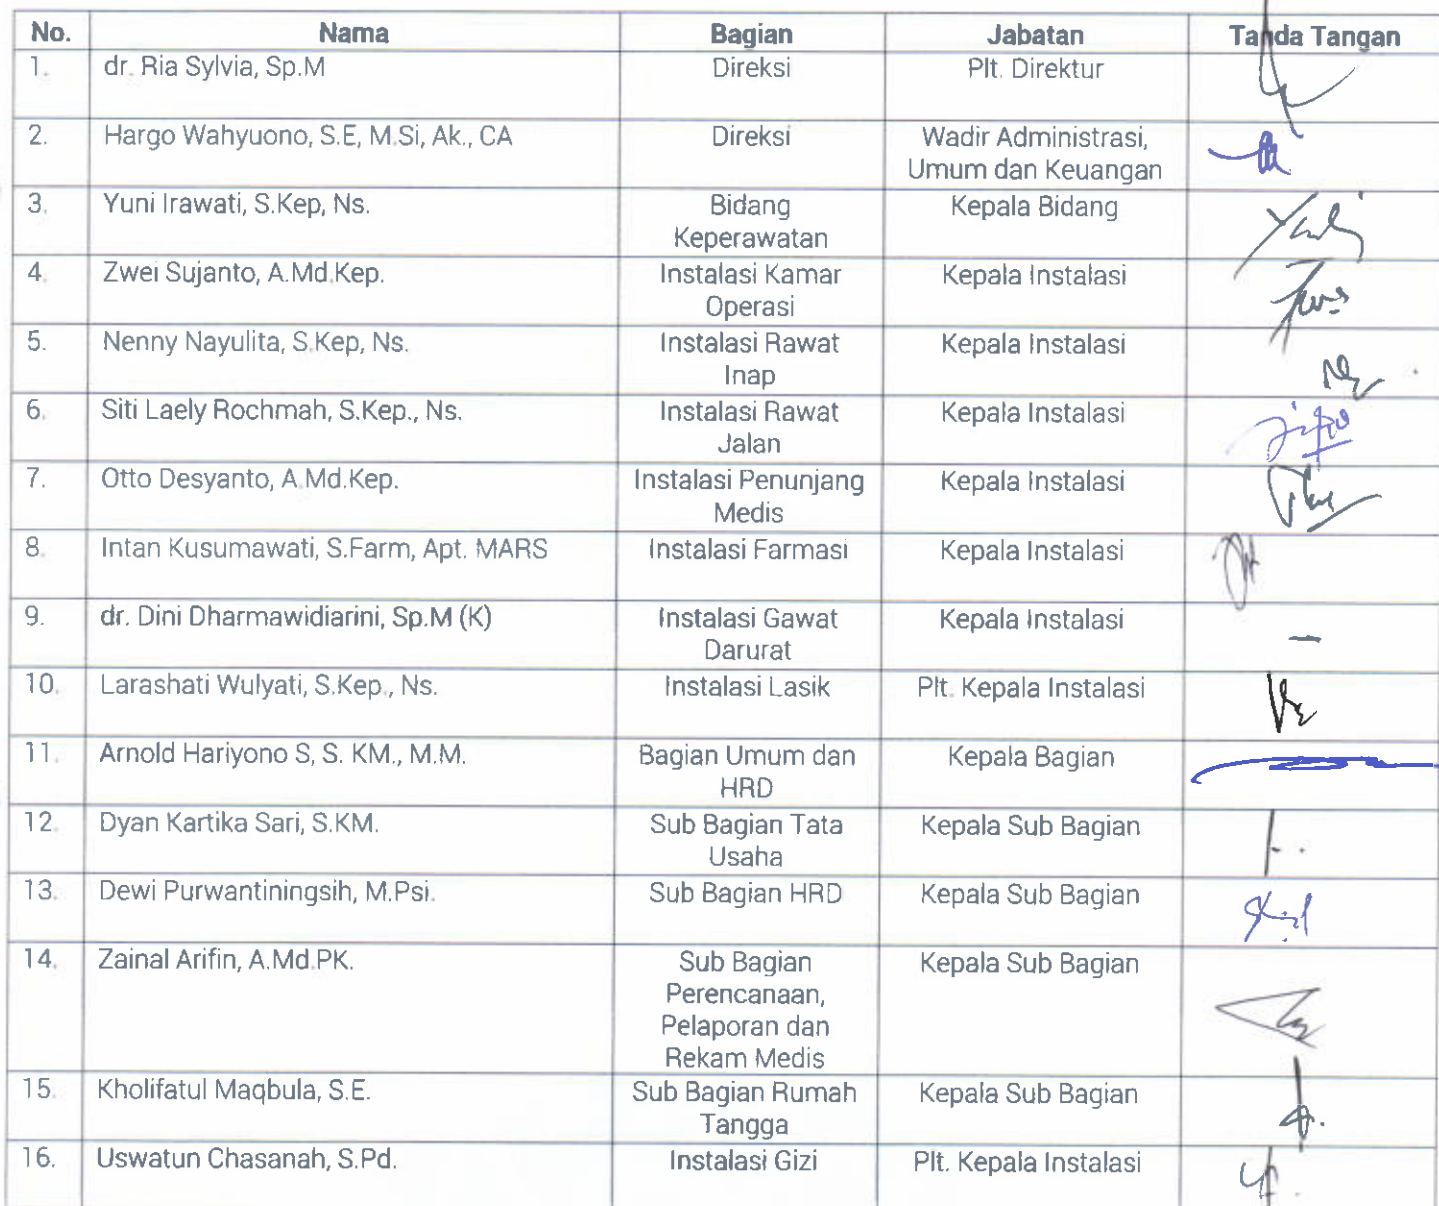 No. Nama Bagian Jabatan Tanda Tangan
1. dr. Ria Sylvia, Sp.M Direksi Plt. Direktur
2. Hargo Wahyuono, S.E, M.Si, Ak., CA Direksi Wadir Administrasi,
Umum dan Keuangan
3. Yuni Irawati, S.Kep, Ns. Bidang Kepala Bidang
Keperawatan
4. Zwei Sujanto, A.Md.Kep. Instalasi Kamar Kepala Instalasi
Operasi
5. Nenny Nayulita, S.Kep, Ns. Instalasi Rawat Kepala Instalasi
Inap
6. Siti Laely Rochmah, S.Kep., Ns. Instalasi Rawat Kepala Instalasi
Jalan
7. Otto Desyanto, A.Md.Kep. Instalasi Penunjang Kepala Instalasi
Medis
8. Intan Kusumawati, S.Farm, Apt. MARS Instalasi Farmasi Kepala Instalasi
9. dr. Dini Dharmawidiarini, Sp.M (K) Instalasi Gawat Kepala Instalasi
Darurat
10. Larashati Wulyati, S.Kep., Ns. Instalasi Lasik Plt. Kepala Instalasi
11. Arnold Hariyono S, S. KM., M.M. Bagian Umum dan Kepala Bagian
HRD
12. Dyan Kartika Sari, S.KM. Sub Bagian Tata Kepala Sub Bagian
Usaha
13. Dewi Purwantiningsih, M.Psi. Sub Bagian HRD Kepala Sub Bagian
14. Zainal Arifin, A.Md.PK. Sub Bagian Kepala Sub Bagian
Perencanaan,
Pelaporan dan
Rekam Medis
15. Kholifatul Maqbula, S.E. Sub Bagian Rumah Kepala Sub Bagian
Tangga
16. Uswatun Chasanah, S.Pd. Instalasi Gizi Plt. Kepala Instalasi